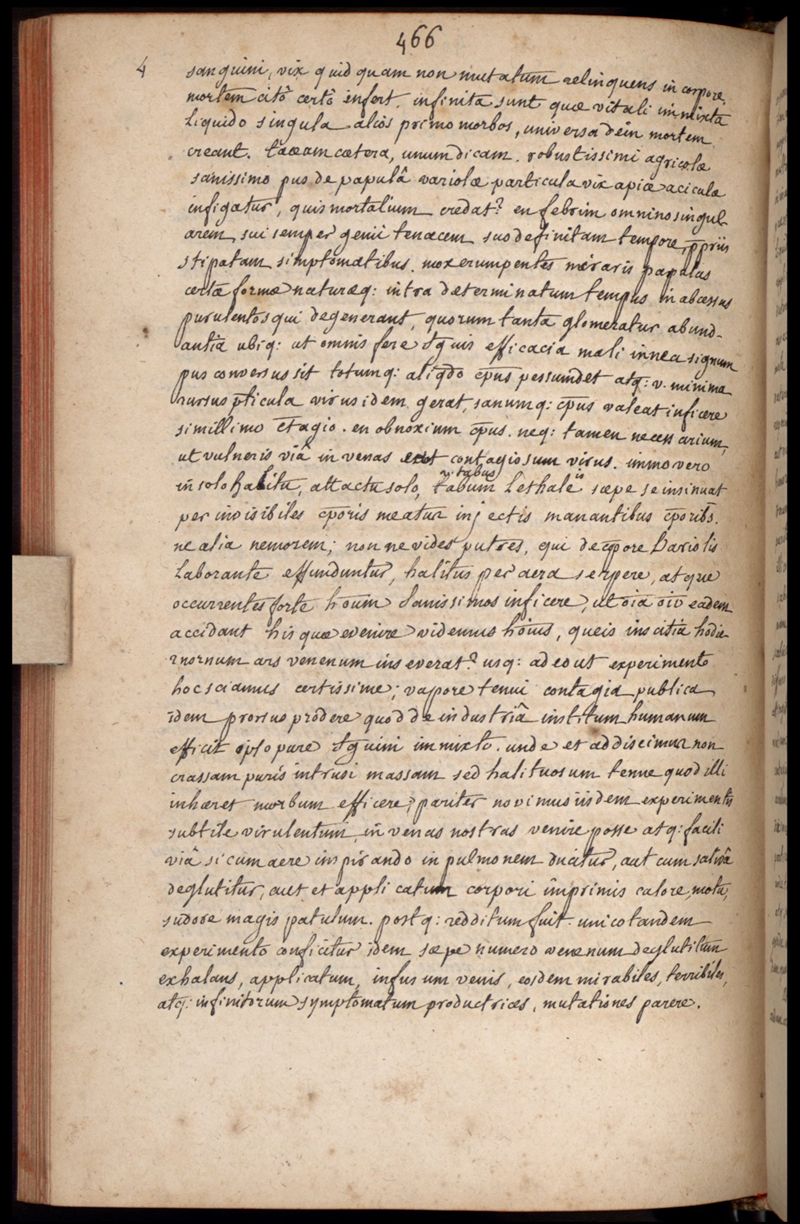 466
4
sanguini, vix quidquam non mutatum relinquens in corpore,
mortem citò certò infert. infinita sunt quæ vitali immixta
Liquido singula aliòs primo morbos, universa dein mortem
creant. taceam cætera, unum dicam. robustissimi agricolæ
sanissimo pus de papulâ variolæ particula vix apice acicula
infigatur, quis mortalium credat? en febrim omnino singul
arem, sui semper genii tenacem, suo definitam tempore, ppriis
stipatam simptomatibus. mox erumpentes miraris papulas
certæ formæ naturæq: intra determinatum tempus in abcessus
purulentos qui degenerant, quorum tanta glomeratur abund-
antia ubiq: ut omnis fere sguis efficacia mali in nea signum
pus conversus sit totumq: aliqdo cpus pessumdet atq: v. minima
rursus pticula virus idem gerat, sanumq: cpus valeat inficere
simillimo ctagio. en obnoxium cpus. neq: tamen necessarium,
ut vulneris viâ in venas contagiosum virus. immo vero
in solo halitu, attactu solo, tabum Lethale sæpe se insinuat
tabus is
per invisibiles cporis meatus injectis manantibus cporibs.
ne alia nemorem; nonne vides putres, qui de cpore Variolis
Laborante effunduntur, halitus per aera serpere, atque
occurrentes forte houm sanissimos inficere, ut oia oio eadem
accidant his quæ evenire videmus hoius, queis inscitia hodie
rnornum ars venenum inseverat? usq: adeo ut experimento
hoc sciamus certissime; vapore tenui contagia publica
idem prorsus prodere quod de industriâ institum humanum
efficit ipso pure sguini immixto. unde et addiscimus non
crassam puris intrusi massam sed halituosum tenue quod illi
inhæret morbum efficere; pariter novimus iisdem experimentis
subtile virulentum in venas nostras venire posse atq: facili
viâ si cum aere inspirando in pulmonem ducitur, aut cum salivâ
deglutitur, aut et applicatum corpori imprimis calore, motu,
sudore magis patulum. postq: redditum fuit. unico tandem
experimento conficitur idem sæpe numero venenum deglutitum
exhalans, applicatum, infusum venis, eosdem mirabiles, terribiles,
atq: infinitorum symptomatum productrices, mutationes parere.